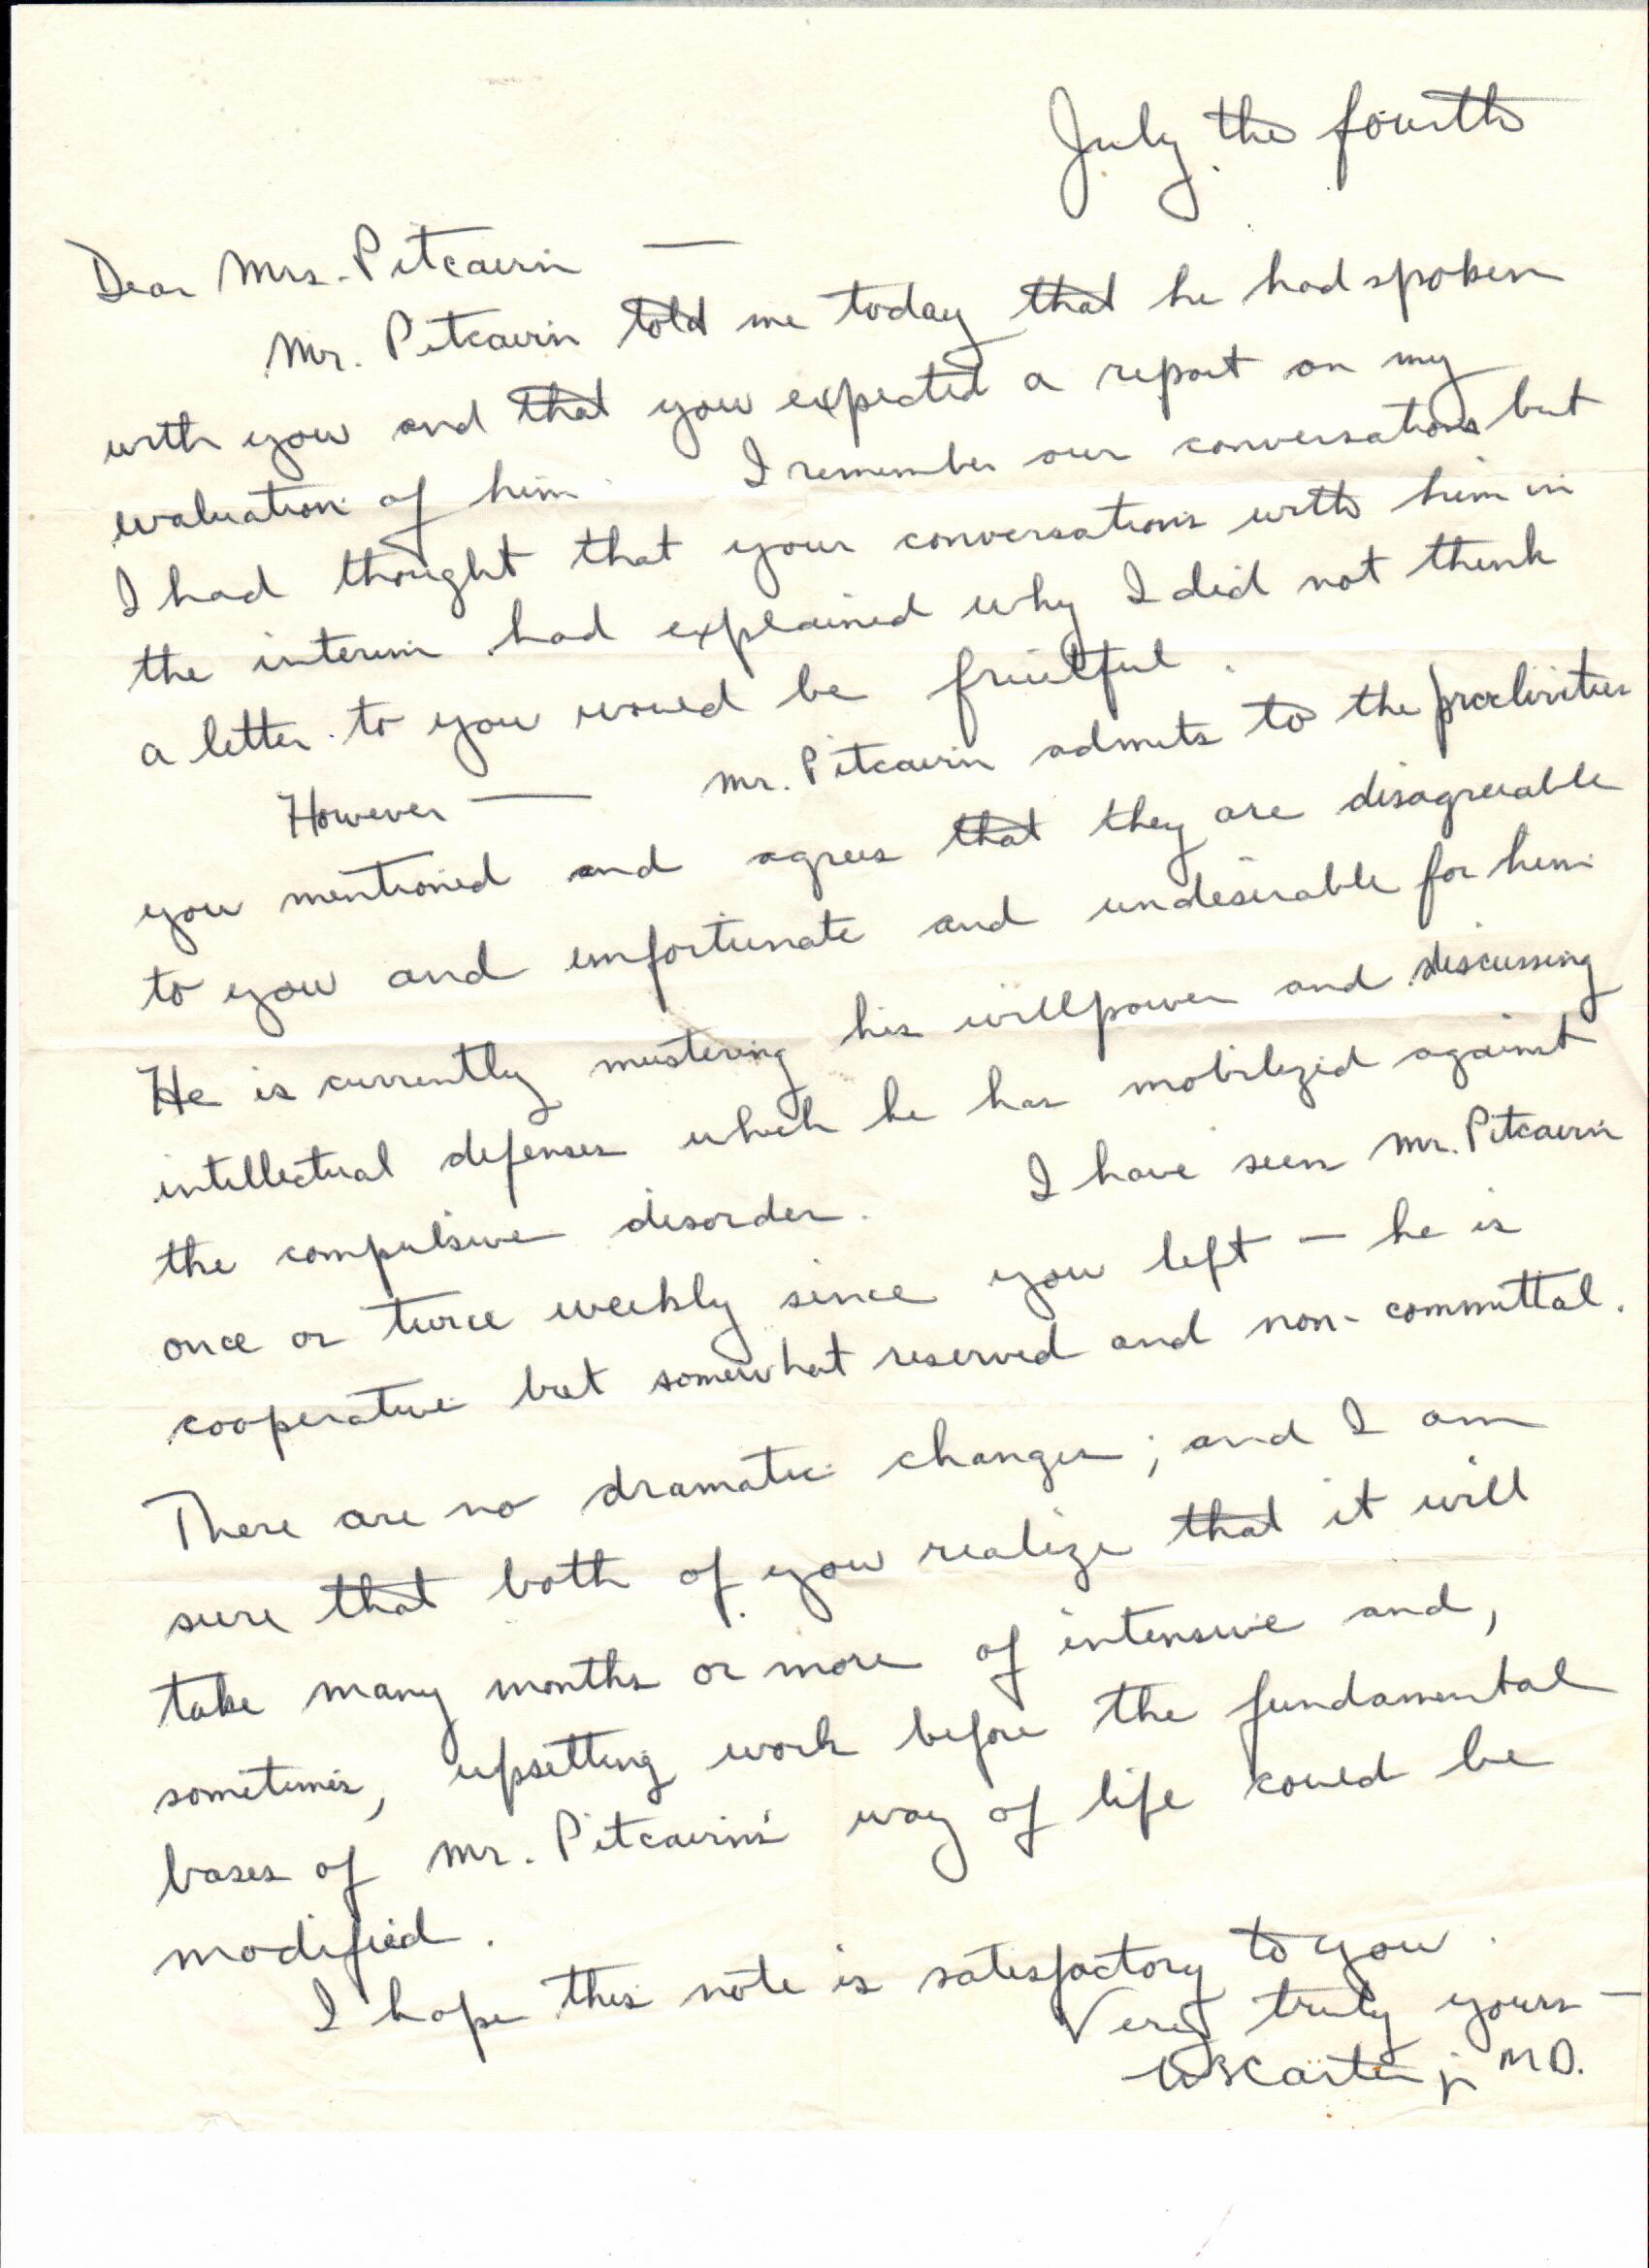 July the fourth
Dear Mrs. Pitcairn —
Mr. Pitcairn told me today that he had spoken
with you and that you expected a report on my
evaluation of him. I remember our conversations but
I had thought that your conversations with him in
the interim had explained why I did not think
a letter to you would be fruitful.
However — Mr. Pitcairn admits to the proclivities
you mentioned and agrees that they are disagreeable
to you and unfortunate and undesirable for him.
He is currently mustering his willpower and discussing
intellectual defenses which he has mobilized against
the compulsive disorder. I have seen Mr. Pitcairn
once or twice weekly since you left – he is
cooperative but somewhat reserved and non-committal.
There are no dramatic changes; and I am
sure that both of you realize that it will
take many months or more of intensive and,
sometimes, upsetting work before the fundamental
bases of Mr. Pitcairn's way of life could be
modified.
I hope this note is satisfactory to you.
Very truly yours –
Carter jr MD.